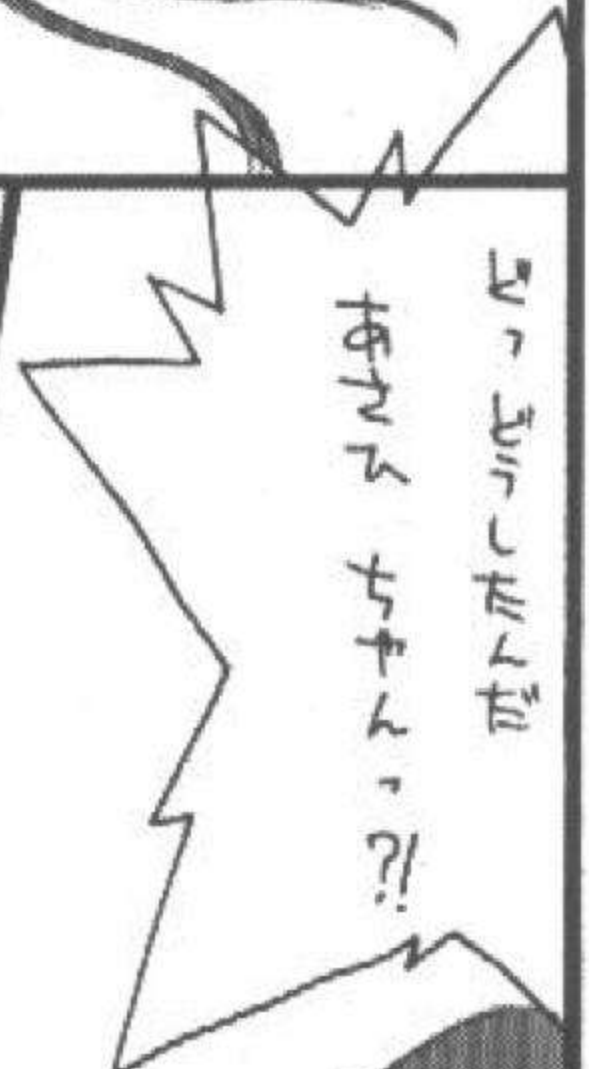 どっどうしたんだ
あさひちゃんっ?!